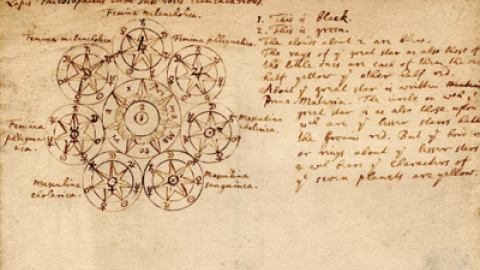 Lapis Philosophicus cum suis rotis elementaribus.
Femina melancholica.
Femina phlegmatica.
Femina
phlegmatica.
Masculina
Masculina
sanguinea.
Masculina
1. This is black.
2. This is green.
The clouds about 2 are blue.
The rays of yᵉ great star as also those of
the little ones are each of them the one
half yellow yᵉ other half red.
About yᵉ great star is written
Prima Materia. The circle on wᶜʰ yᵉ
great star is as also those upon
wᶜʰ yᵉ lesser stars
the ground red. But yᵉ
or rings about yᵉ lesser stars
yᵉ characters of
yᵉ seven planets are yellow.